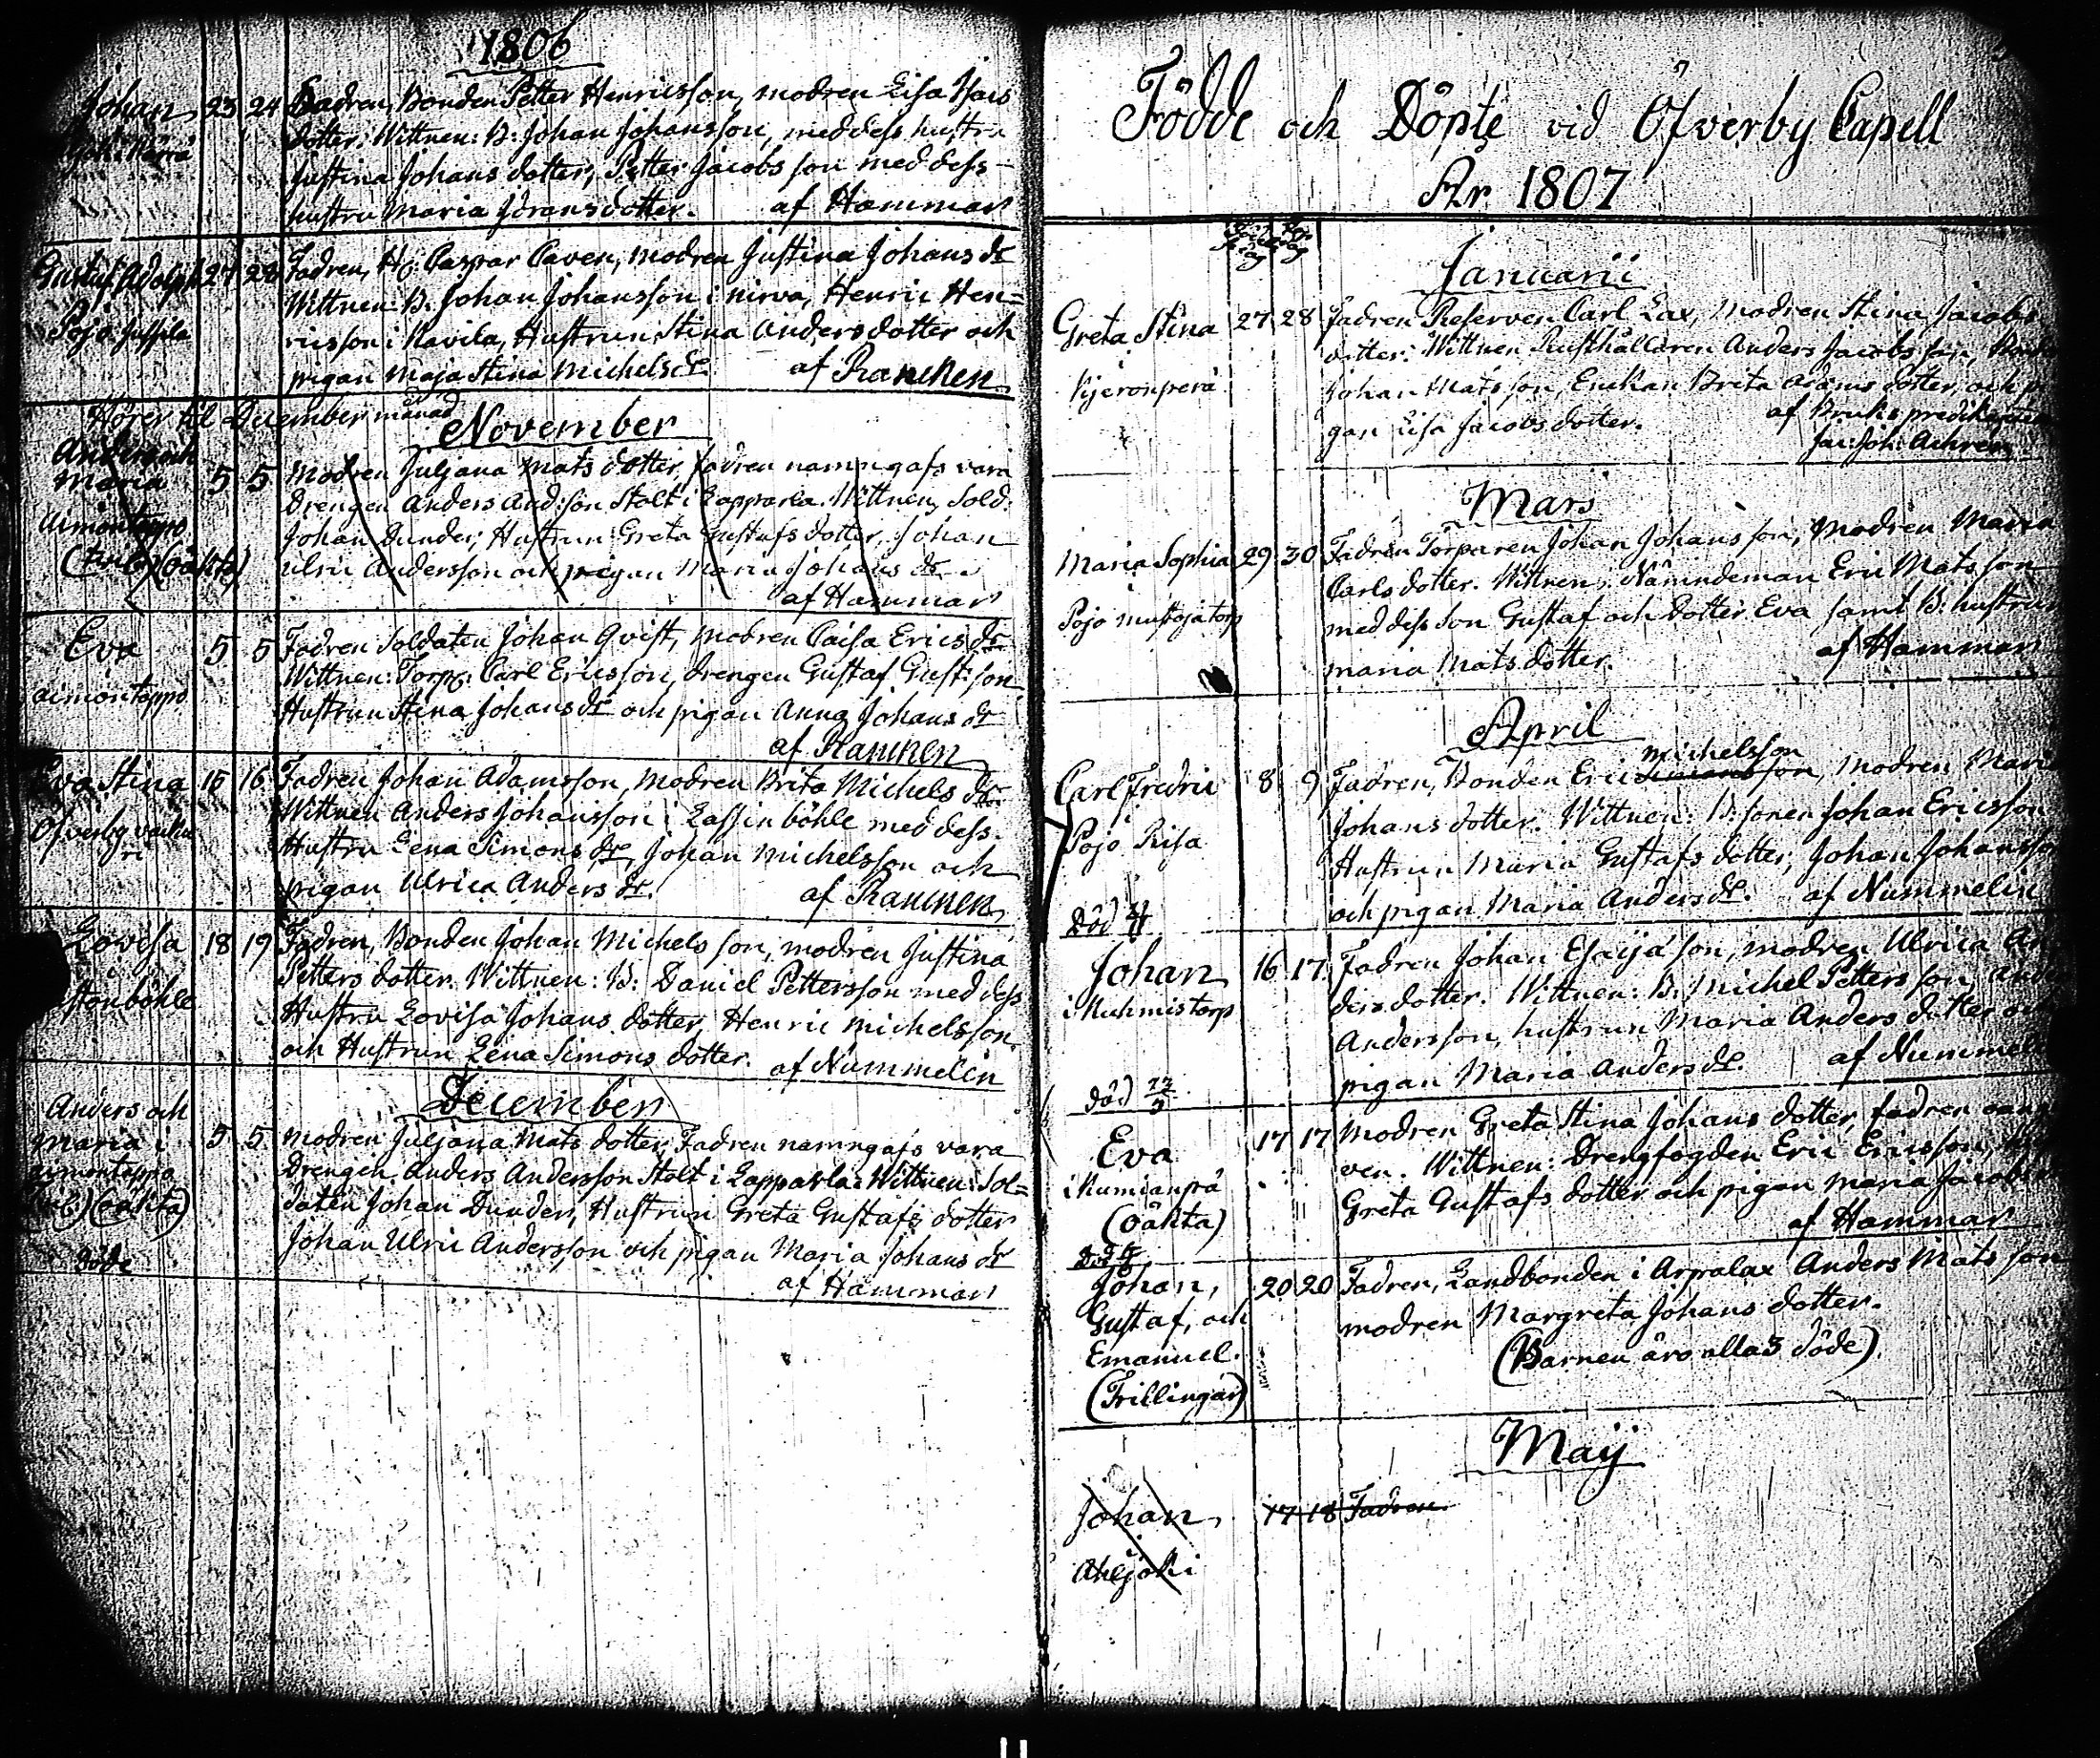 1806
Johan 23 24 Fadren, Bonden Petter Henricsson, modren Lisa Isacs
dotter. Wittnen: B: Johan Johansson, med dess hustru
Justina Johans dotter, Petter Jacobsson med dess
hustru Maria Jöransdotter. af Hammar
Gustaf Adolph 27 28 Fadren, Caspar Caven, modren Justina Johans dr
Wittnen: B. Johan Johansson i Nirva, Henric Hen=
Pojo ricsson i Kavila, Hustrun Stina Andersdotter och
pigan Maja Stina Michels dr. af Rancken
Hörer til December månad
November
Anders och
Maria 5 5 Modren Juljana Mats dotter, fadren namngafs vara
Drengen Anders And:son Stolt i Lapparla. Wittnen, Sold.
Aimontappo Johan Dunder, Hustrun Greta Gustafs dotter, Johan
(oäkta) Ulric Andersson och pigan Maria Johans dr.
af Hammar
Eva 5 5 Fadren Soldaten Johan Qvist, modren Caisa Erics dr
Wittnen: Torp. Carl Ericsson, drengen Gustaf Gust:son
Aimontappo Hustrun Stina Johans dr och pigan Anna Johans dr
af Rancken
Eva Stina 15 16 Fadren Johan Adamsson, Modren Brita Michels dr.
Öfverby Wittnen Anders Johansson i Lassinböhle med dess
Hustru Lena Simons dr, Johan Michelsson och
pigan Ulrica Anders dr. af Rancken
Lovisa 18 19 Fadren, Bonden Johan Michelsson, modren Justina
Petters dotter. Wittnen: B: Daniel Pettersson med dess
Hustru Lovisa Johans dotter, Henric Michelsson
och Hustrun Lena Simons dotter. af Nummelin
December
Anders och
Maria i 5 5 Modren Juljana Mats dotter, Fadren namngafs vara
Aimontappo Drengen Anders Andersson Stolt i Lapparla. Wittnen: Sol=
(oäkta) daten Johan Dunder, Hustrun Greta Gustafs dotter
döde Johan Ulric Andersson och pigan Maria Johans dr
af Hammar
Födde och Döpte vid Öfverby Capell
År 1807
Januarii
Greta Stina 27 28 Fadren Reserven Carl Lax, Modren Stina Jacobs
dotter. Wittnen Rusthållaren Anders Jacobsson,
Kjeronperä Johan Matsson, Enkan Brita Adams dotter, och pi
gan Lisa Jacobs dotter. af Bruks predikanten
Joh: Achrén
Mars
Maria Sophia 29 30 Fadren Torparen Johan Johansson, Modren Maria
Carlsdotter. Wittnen: Nämndeman Eric Matsson
Pojo Mustojatorp med dess Son Gustaf och Dotter Eva samt B: hustrun
Maria Mats dotter. af Hammar
April
Michelsson
Carl Fredric 8 9 Fadren, Bonden Eric Simonsson, modren Mari
i Johans dotter. Wittnen: B: sonen Johan Ericsson
Pojo Risa Hustrun Maria Gustafs dotter, Johan Johansson
och pigan Maria Anders dr. af Nummelin
Död
Johan 16 17 Fadren Johan Esaijason, modren Ulrica An
i Kuhmistorp ders dotter. Wittnen: B. Michel Pettersson, Anders
Andersson, hustrun Maria Anders dotter och
pigan Maria Anders dr. af Nummelin
död
Eva 17 17 Modren Greta Stina Johans dotter, fadren
Wittnen: Drengfogden Eric Ericsson,
i Kumianpä Greta Gustafs dotter och pigan Maria Jacobs
(Oäkta) af Hammar
Johan, 20 20 Fadren, Landbonden i Arpalax Anders Matsson
Gustaf, och modren Margreta Johans dotter.
Emanuel. (Barnen äro alla 3 döde).
(Trillingar)
Maij
Johan, 17 18 Fadren
Ahljoki